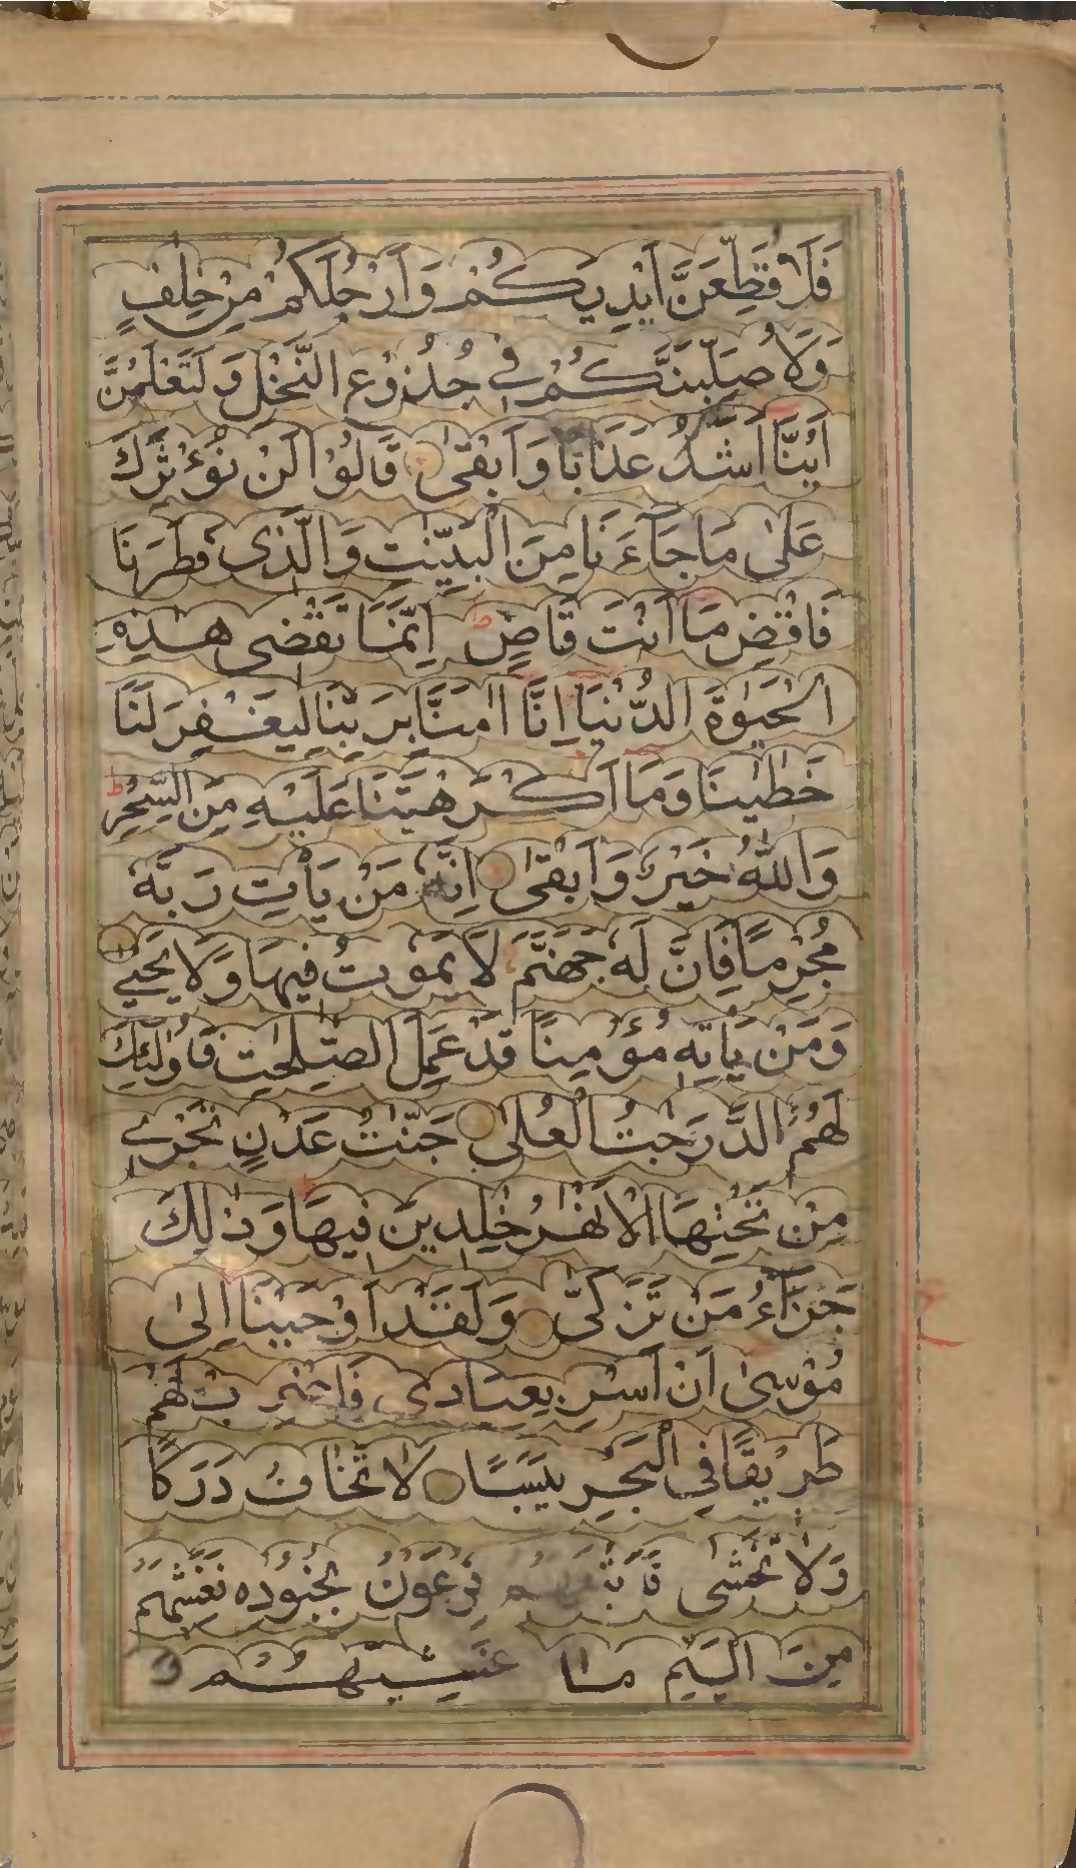 فَلَاُقَطِّعَنَّ اَيْدِيَكُمْ وَاَرْجُلَكُمْ مِنْ خِلٰفٍ
وَلَاُصَلِّبَنَّكُمْ فِي جُذُوعِ النَّخْلِ وَلَتَعْلَمُنَّ
اَيُّنَا اَشَدُّ عَذَابًا وَاَبْقٰى قَالُوْا لَنْ نُؤْثِرَكَ
عَلٰى مَا جَآءَنَا مِنَ الْبَيِّنٰتِ وَالَّذِى فَطَرَنَا
فَاقْضِ مَا اَنْتَ قَاضٍ اِنَّمَا تَقْضِى هٰذِهِ
الْحَيٰوةَ الدُّنْيَا اِنَّا اٰمَنَّا بِرَبِّنَا لِيَغْفِرَ لَنَا
خَطٰيٰنَا وَمَا اَكْرَهْتَنَا عَلَيْهِ مِنَ السِّحْرِ ط
وَاللّٰهُ خَيْرٌ وَاَبْقٰى اِنَّهٗ مَنْ يَأْتِ رَبَّهٗ
مُجْرِمًا فَاِنَّ لَهٗ جَهَنَّمَ لَا يَمُوْتُ فِيْهَا وَلَا يَحْيٰى
وَمَنْ يَاْتِهٖ مُؤْمِنًا قَدْ عَمِلَ الصّٰلِحٰتِ فَاُولٰئِكَ
لَهُمُ الدَّرَجٰتُ الْعُلٰى جَنّٰتُ عَدْنٍ تَجْرِى
مِنْ تَحْتِهَا الْاَنْهٰرُ خٰلِدِيْنَ فِيْهَا وَذٰلِكَ
جَزَآءُ مَنْ تَزَكّٰى وَلَقَدْ اَوْحَيْنَا اِلٰى
مُوْسٰى اَنْ اَسْرِ بِعِبَادِى فَاضْرِبْ لَهُمْ
طَرِيْقًا فِى الْبَحْرِ يَبَسًا لَا تَخَافُ دَرَكًا
وَلَا تَخْشٰى فَاَتْبَعَهُمْ فِرْعَوْنُ بِجُنُوْدِهٖ فَغَشِيَهُمْ
مِنَ الْيَمِّ مَا غَشِيَهُمْ